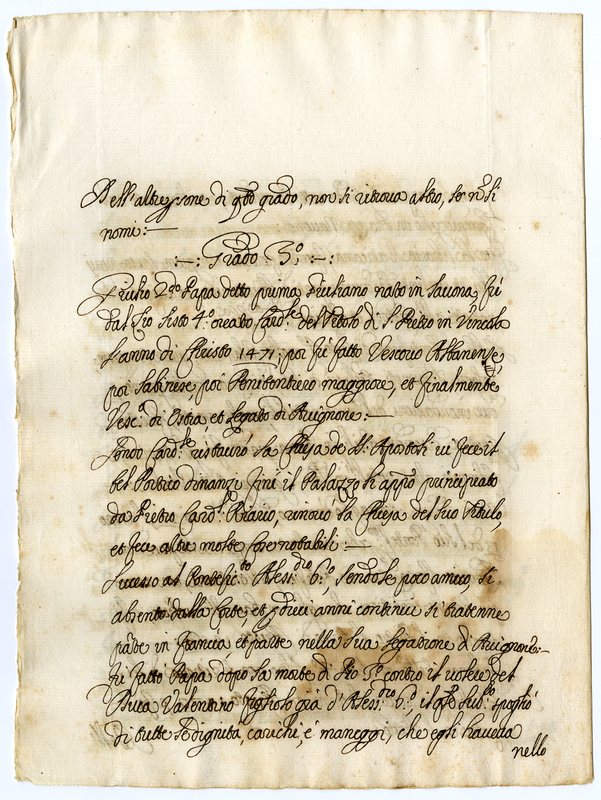 Dell'altre p̱sone di q̱sto grado, non si ritroua altro, se nō li
nomi: —
:—: Grado 3.º :—:
Giulio 2.do Papa detto prima Giuliano nato in Sauona, fù
dal Zio Sisto 4.º creato Card.le del titolo di S. Pietro in Vincola
l'anno di Christo 1471; poi fù fatto Vescouo Albanense,
poi Sabinese, poi Penitentiero maggiore, et finalmente
Vesc.º di Ostia et Legato di Auignone: —
Sendo Card.le ristaurò la Chiesa de SS. Apostoli ui fece il
bel Portico dinanzi, finì il Palazzo li app.o principiato
da Pietro Card.l Riario, rinouò la Chiesa del suo titulo,
et fece altre molte cose notabili: —
Sucesso al Pontefic.to Aless.dro 6.º, sendole poco amico, si
absentò dalla Corte, et p̱ dieci anni continui si trattenne
parte in Francia et parte nella sua legazione di Auignone: —
fù fatto Papa dopo la morte di Pio 3.º contro il uolere del
Duca Valentino figliolo già d'Aless.dro 6.º, il q̱le sub.º spogliò
di tutte le dignita, carichi, e maneggi, che egli haueua
nello